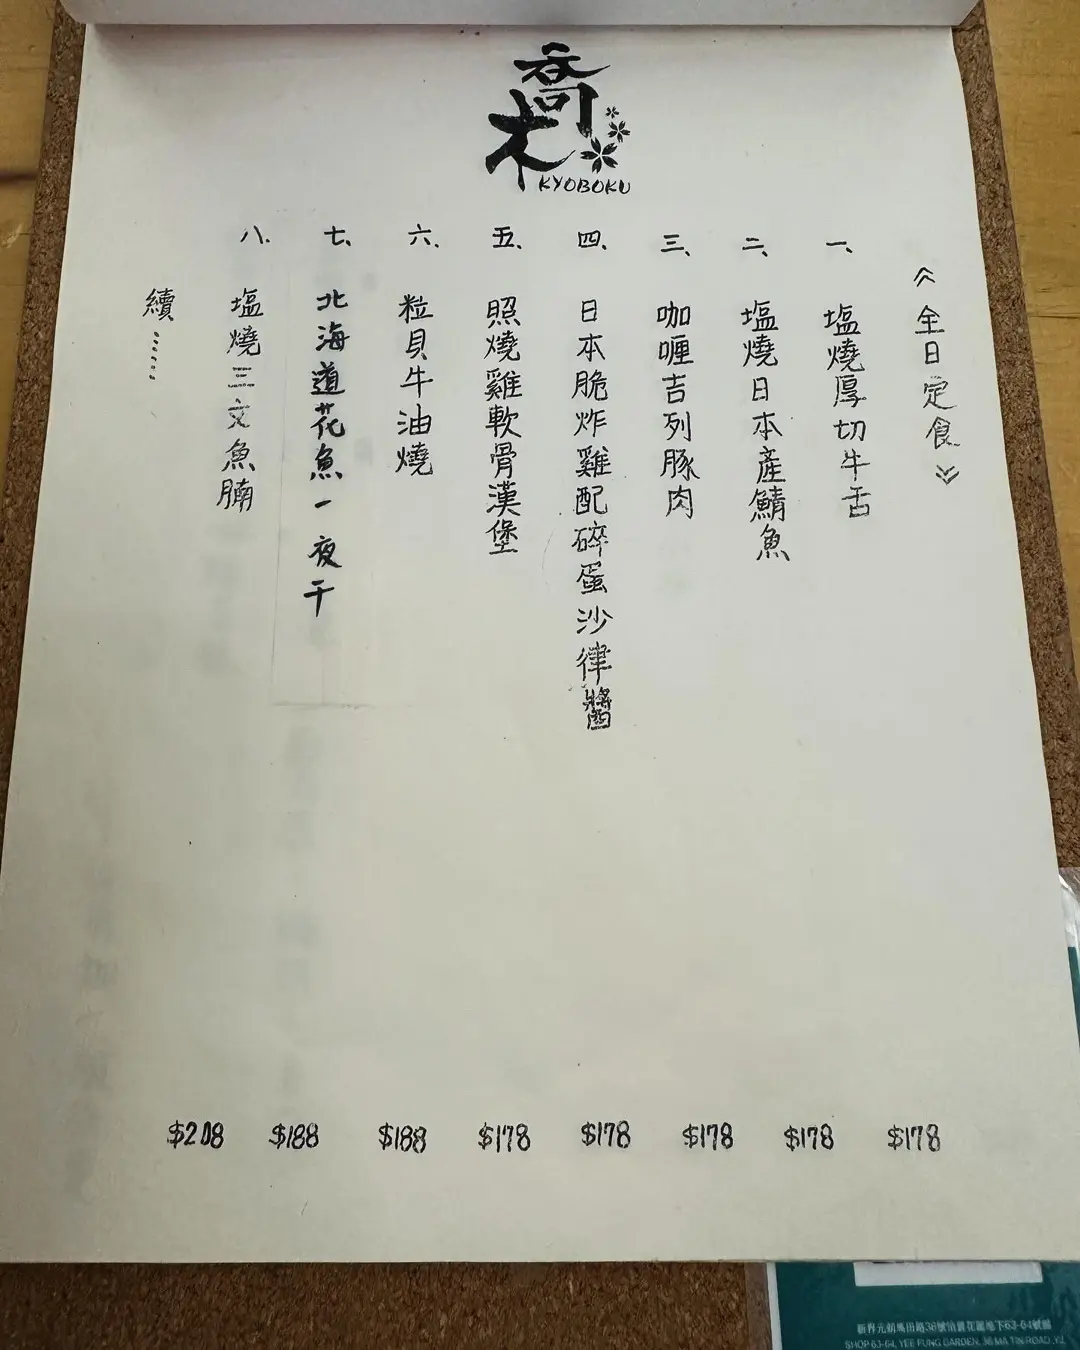 喬木
KYOBOKU
《全日定食》
一、塩燒厚切牛舌 $178
二、塩燒日本產鯖魚 $178
三、咖喱吉列豚肉 $178
四、日本脆炸雞配碎蛋沙律醬 $178
五、照燒雞軟骨漢堡 $178
六、粒貝牛油燒 $188
七、北海道花魚一夜干 $188
八、塩燒三文魚腩 $208
續……
SHOP 63-64, YEE FUNG GARDEN, 38 MA TIN ROAD, Y.L